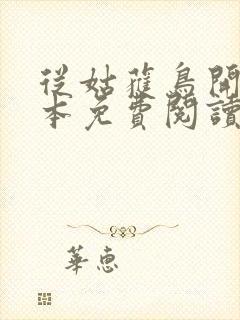 從姑獲鳥開
本免費閱讀
華惠